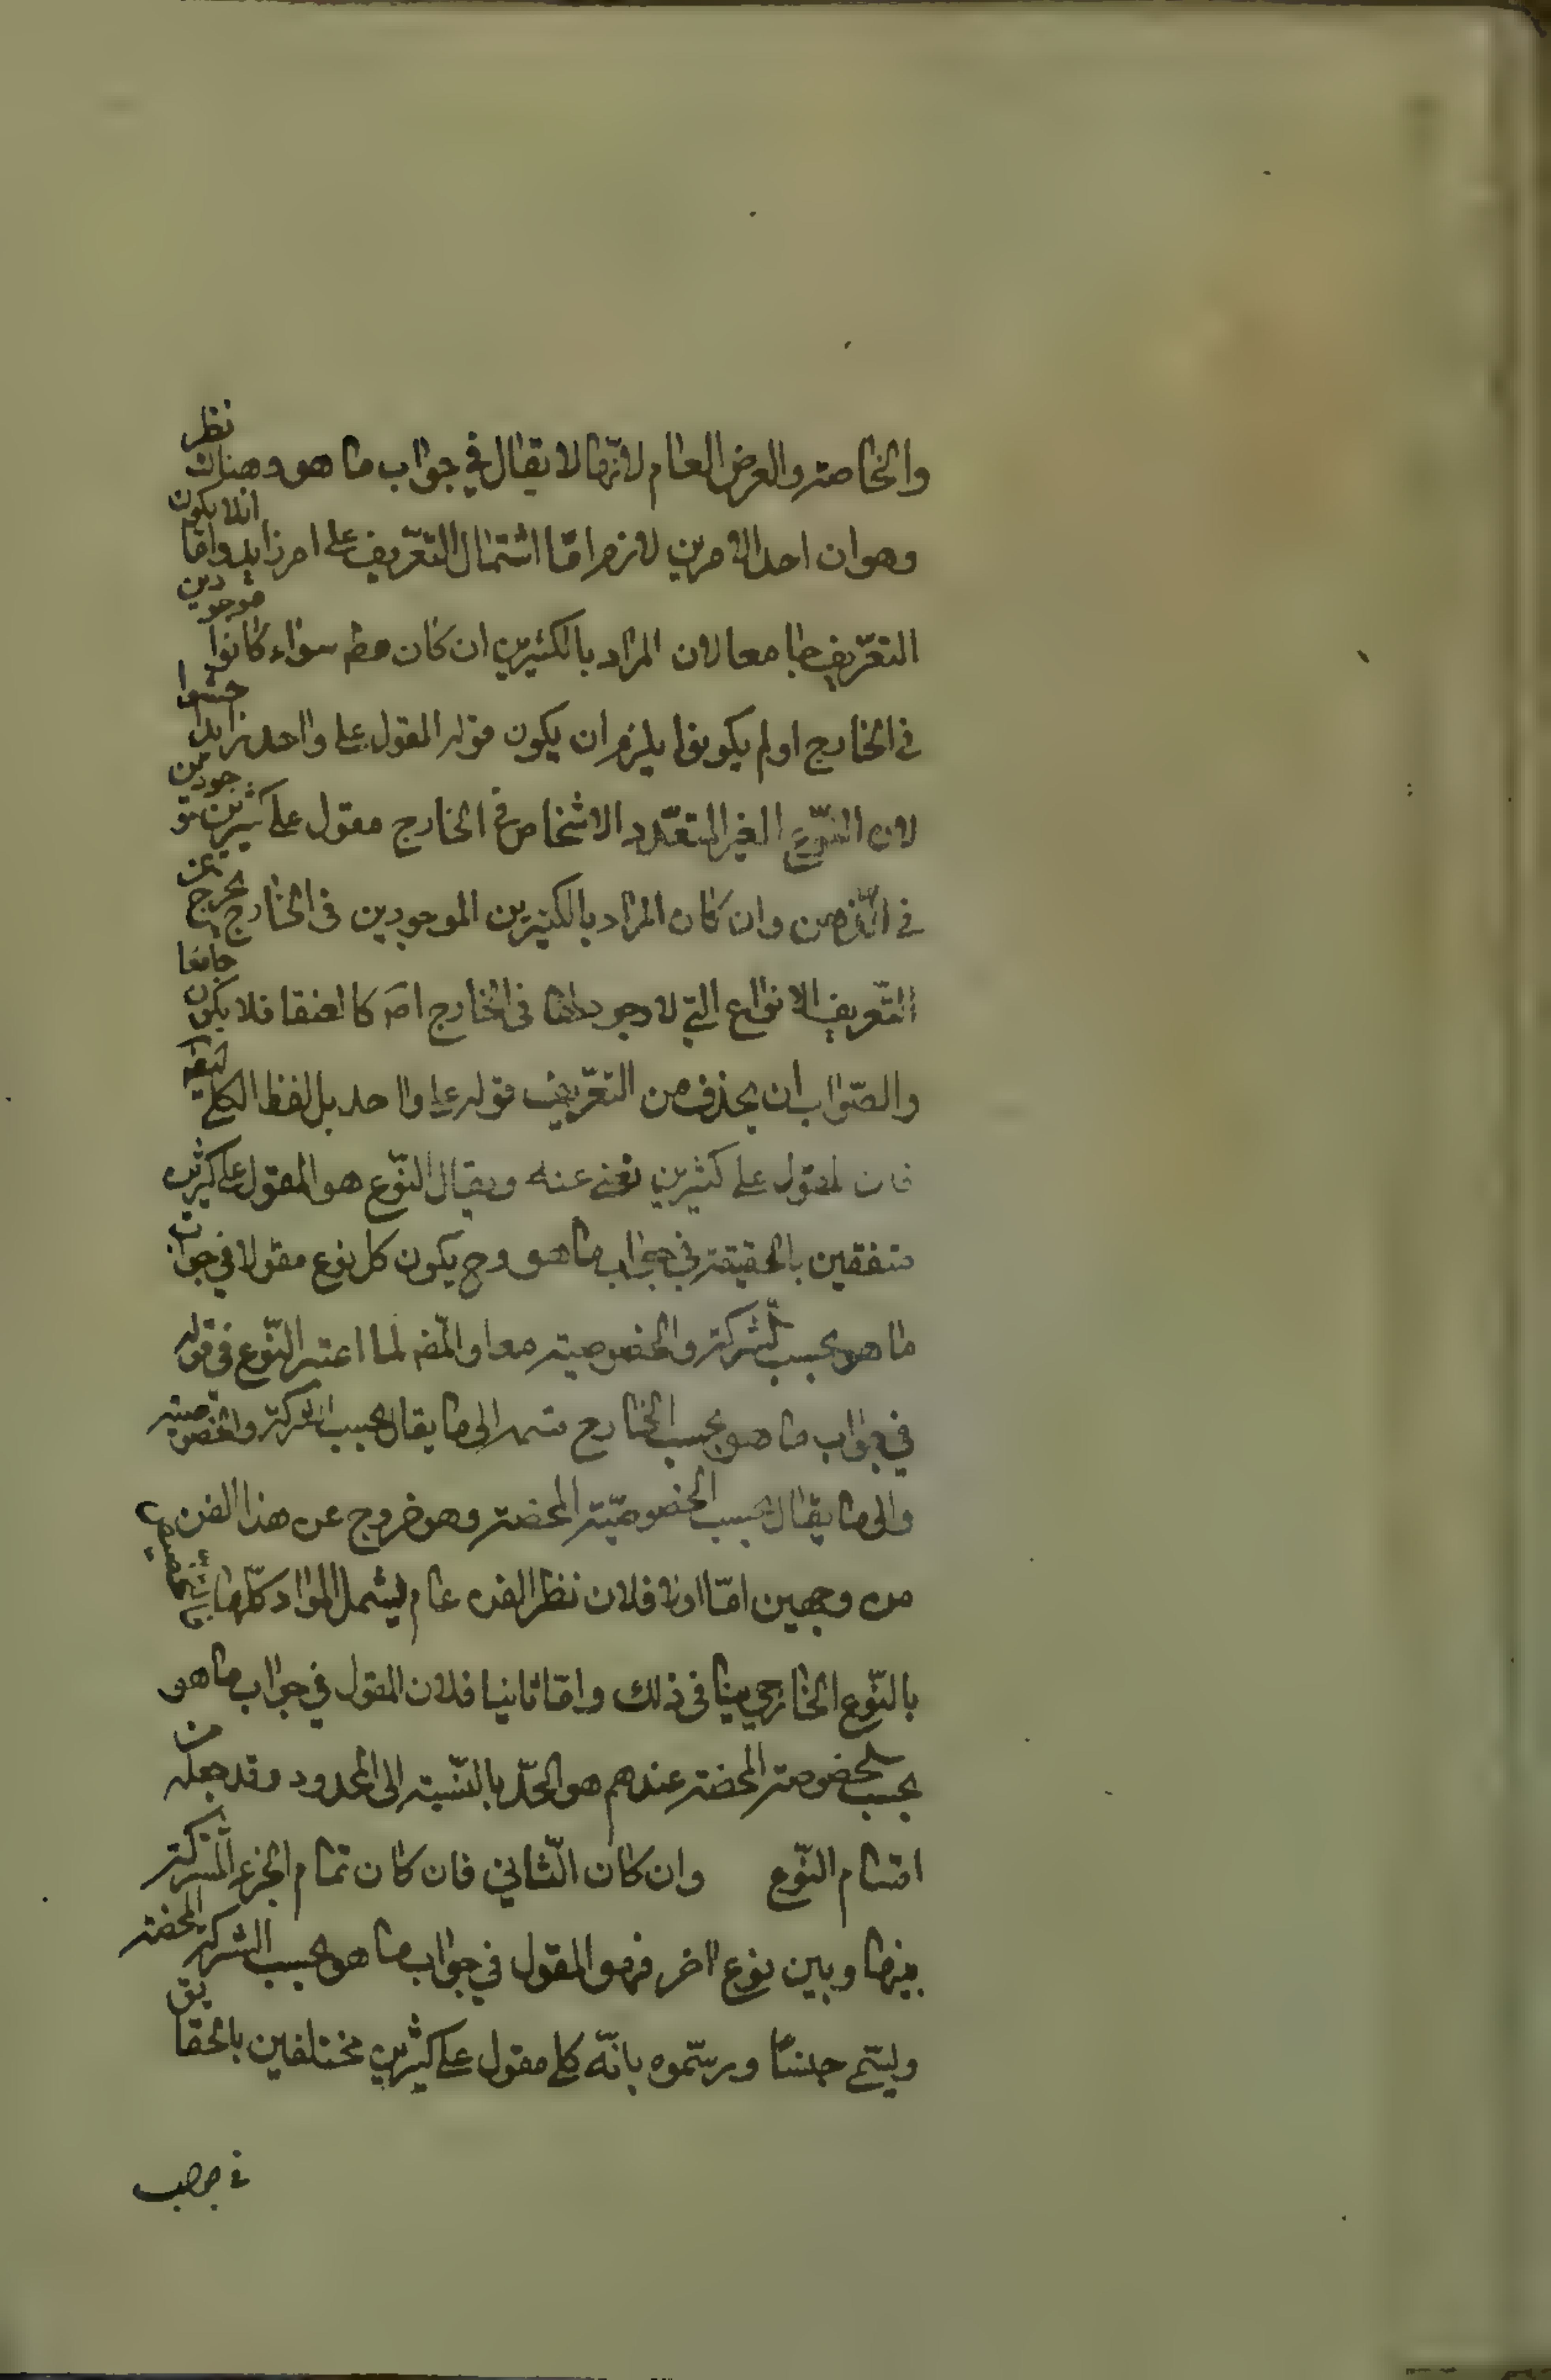 والخاصة والعرض العام لانها لا يقال في جواب ما هو وهناك نظر
وهو ان احد الامرين لازم امّا اشتمال التعريف على امر زايد واما ان لا يكون
التعريف جامعا لان المراد بالكثيرين ان كان مط سواء كانوا موجودين
في الخارج او لم يكونوا يلزم ان يكون قوله المقول على واحد زايدا حشوا
لان النّوع الغير المتعدّد الاشخاص في الخارج مقول على كثيرين موجودين
في الذّهن وان كان المراد بالكثيرين الموجودين في الخارج يخرج عن
التّعريف الانواع التي لا وجود لها في الخارج اصَ كالعنقا فلا يكون جامعا
والصّواب ان يحذف من التعّريف قوله على واحد بل لفظ الكلي ايضا
فان المقول على كثيرين يغني عنه ويقال النّوع هو المقول على كثيرين
متفقين بالحقيقة في جواب ما هو وح يكون كل نوع مقولا في جواب
ما هو بحسب الشّركة والخصوصية معا والمّص لما اعتبر النّوع في قوله
في جواب ما هو بحسب الخارج قسمه الى ما يقال بحسب الشركة والخصوصية
والى ما يقال بحسب الخصوصيّة المحضة وهو خروج عن هذا الفن
من وجهين امّا اولا فلان نظر الفن عام يشمل المواد كلّها
بالنّوع الخارجي ينافى ذلك وامّا ثانيا فلان المقول في جواب ما هو
بحسب الخصوصة المحضة عندهم هو الحدّ بالنّسبة الى المحدود وقد جعله من
اقسام النّوع وان كان الثّاني فان كان تمام الجزء المّشترك
بينها وبين نوع اخر فهو المقول في جواب ما هو بحسب الشركة المحضة
ويسّمى جنسًا ورسّموه بانّه كلي مقول على كثيرين مختلفين بالحقايق
في جواب